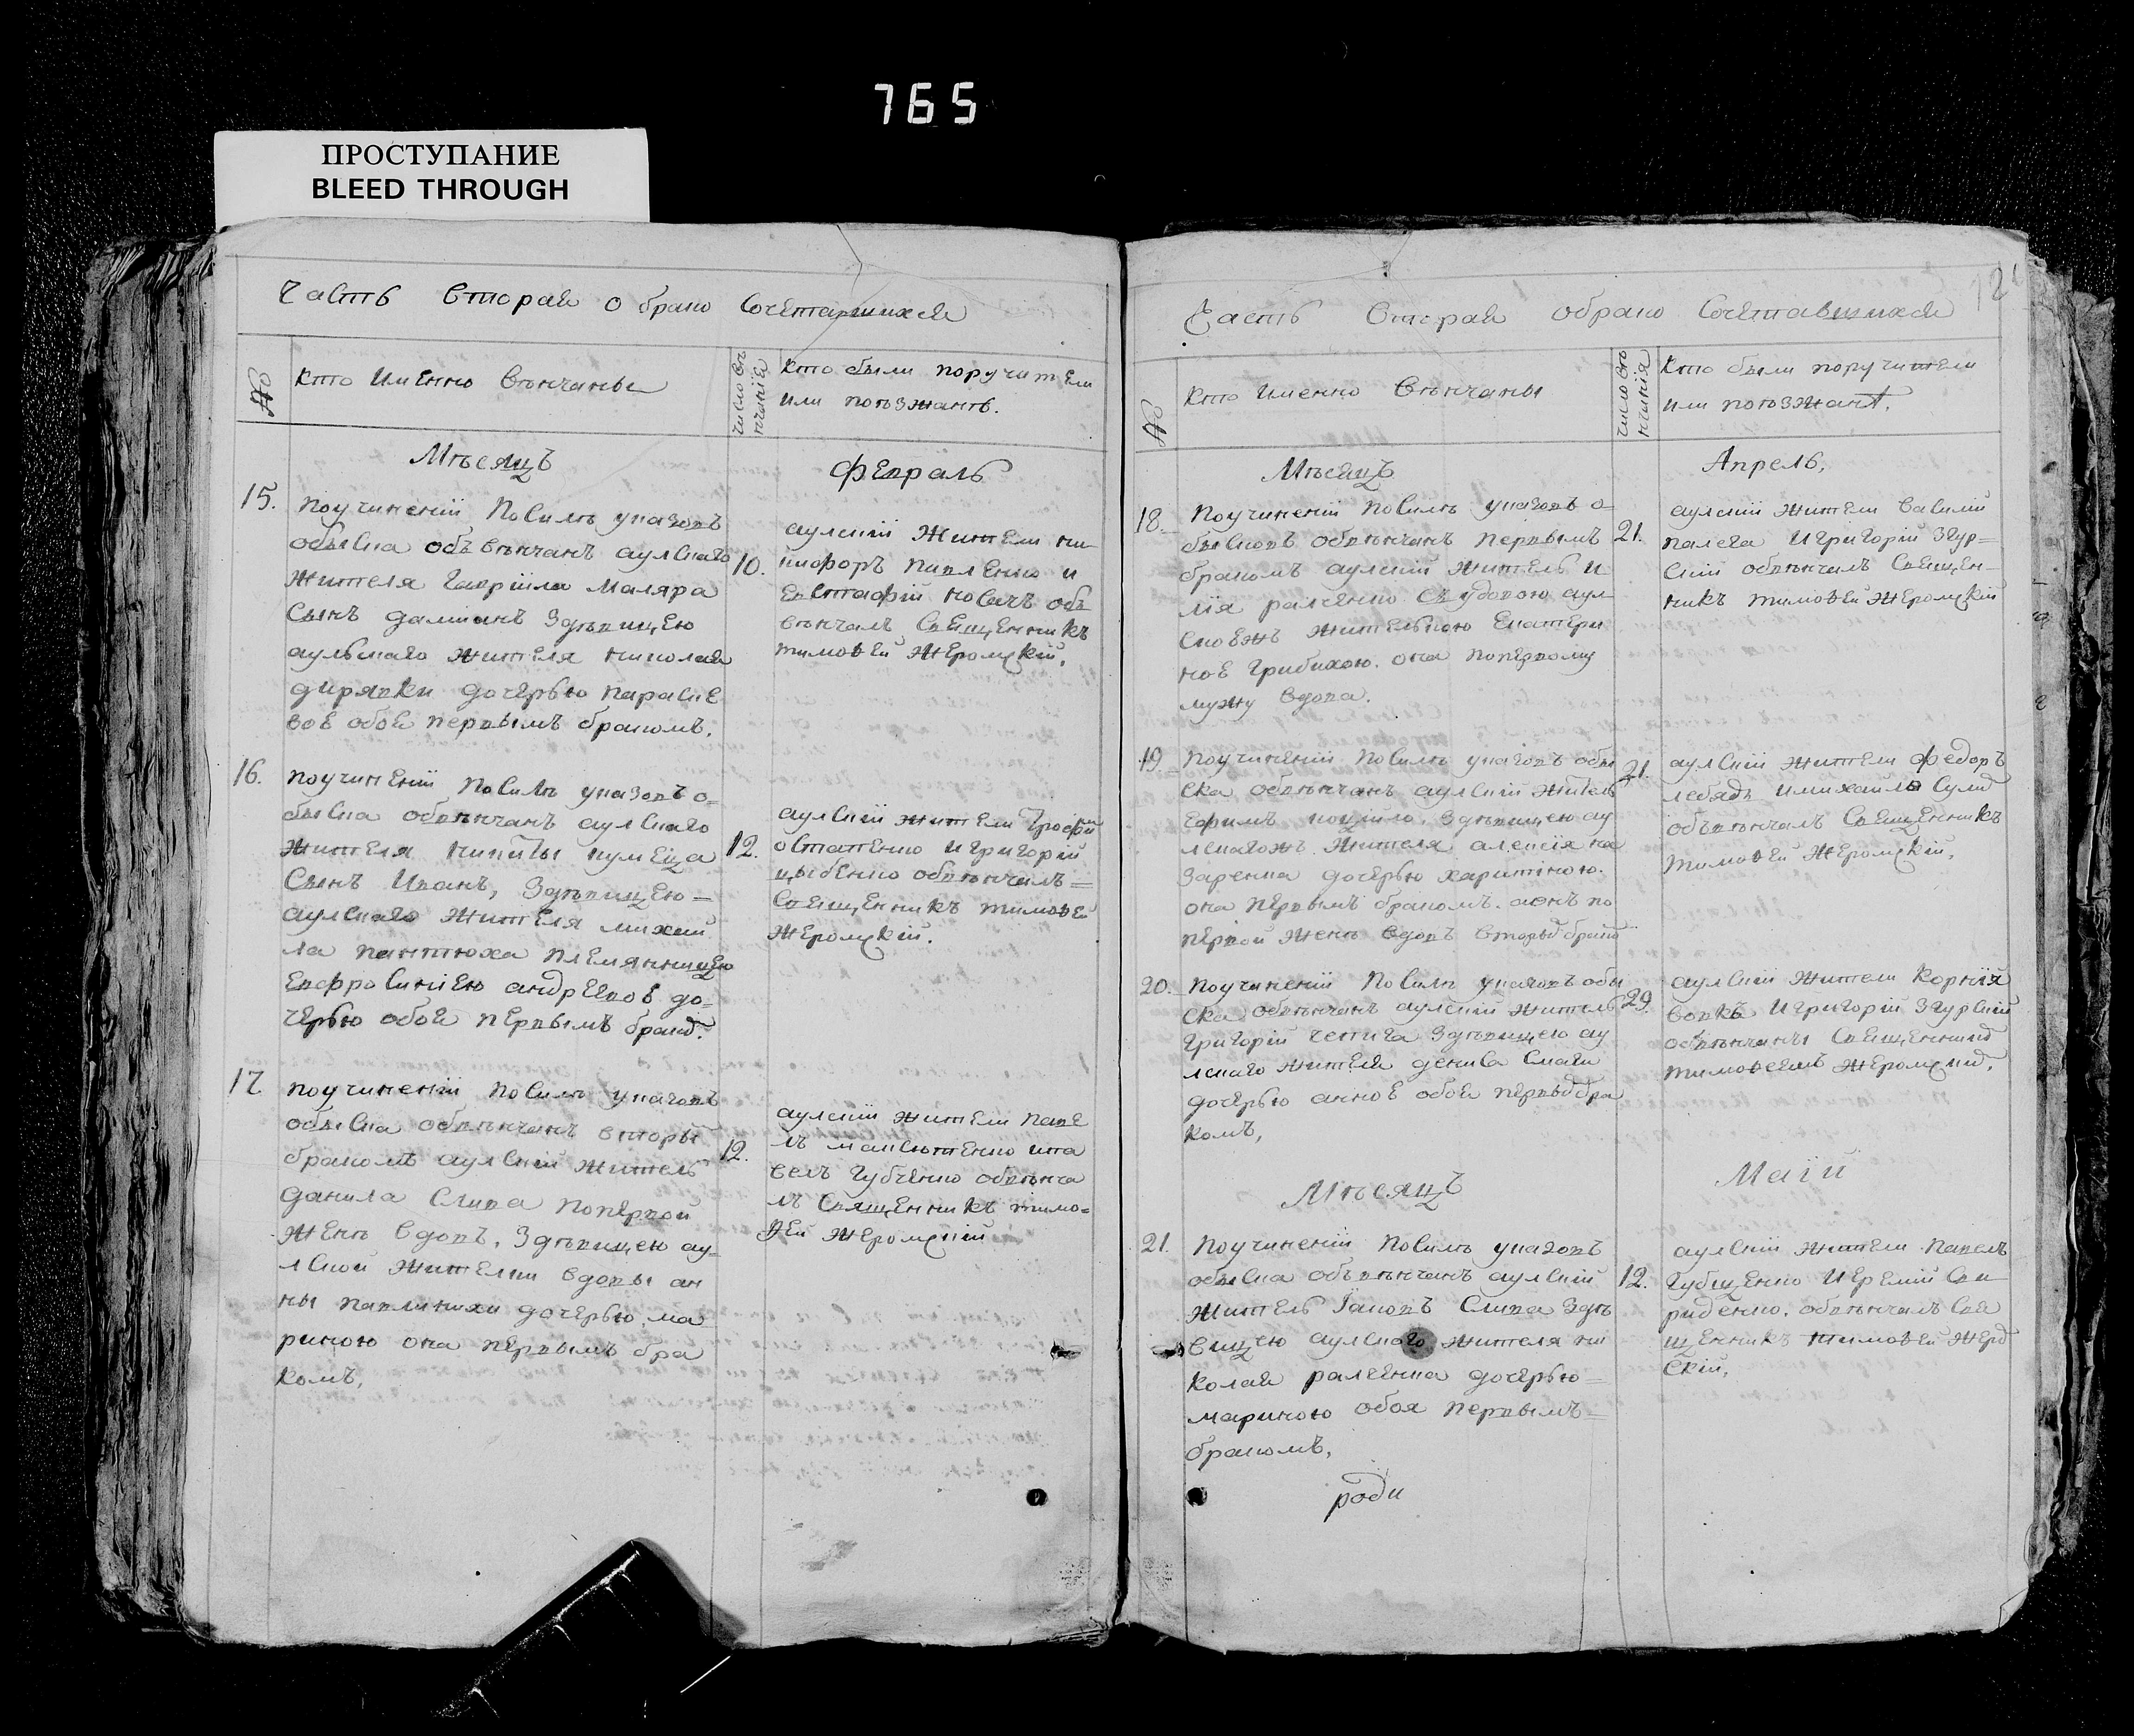 765
ПРОСТУПАНИЕ
BLEED THROUGH
Часть вторая о брако сочетавшихся
№
кто Именно вѣнчаны
число вѣ
нчанія
кто были поручители
или поѣзжанѣ.
Мѣсяцъ
Февраль
15.
поучиненіи повсилѣ указовъ
обыска объвѣнчанъ аулскаго
жителя Гавріила маляра
сынъ даміанъ здѣвицею
аульскаго жителя николая
дирявки дочерью параске
вое обоя первымъ бракомъ.
10.
аулскіи жители ни-
кифоръ павленко и
евстафій новакъ объ
вѣнчалъ священникъ
тимоѳей жеромскій.
16.
поучиненіи посилѣ указовъ о-
быска обвѣнчанъ аулскаго
жителя никиты
сынъ иванъ, здѣвицею
аулскаго жителя михай
ла пантюха племянницею
евфросиніею андреевое до-
черью обоя первымъ
12.
аулскіи жители
остапенко и григорій
цыбенко обвѣнчалъ
священникъ тимоѳей
жеромскій.
17
поучиненіи посилѣ указовъ
обыска обвѣнчанъ вторы
бракомъ аулскій житель
данила слива попервой
женѣ вдовъ, здѣвицею ау-
лской жителки вдовы ан
ны павлинихи дочерью ма
риною она первымъ бра
комъ,
12.
аулскіи жители паве
лъ максютенко ипа
велъ губченко обвѣнча
лъ священникъ тимо=
ѳей жеромскій
Часть вторая обрако сочетавшихся
№
кто именно вѣнчаны
число вѣ
нчанія
кто были поручители
или поѣзжанѣ.
Мѣсяцъ
Апрель,
18.
поучиненіи посилѣ указовъ о-
бысковъ обвѣнчанъ первымъ
бракомъ аулскій житель и
лія ралченко свудовою аул
скоежъ жителькою екатери
ное грибихою. она попервому
мужу вдова.
21.
аулскіи жители василій
палега игригорій згур=
скій обвѣнчалъ священ-
никъ тимоѳей жеромскій
19.
поучиненіи посилѣ указовъ обы
ска обвѣнчанъ аулскій житель
ефимъ здѣвицею ау
лскагожъ жителя алексія на
заренка дочерью харитиною.
она первымъ бракомъ. аонъ по
первой женѣ вдовъ
21.
аулскіи жители федоръ
лебядь имихайла
объвѣнчалъ священникъ
тимоѳей жеромскій,
20.
поучиненіи посилѣ указовъ обы
ска обвѣнчанъ аулскій житель
григорій чепига здѣвицею ау
лскаго жителя дениса
дочерью анное обоя бра
комъ,
29.
аулскіи жители корнія
вовкъ игригорій згурскій
обвѣнчаны
тимоѳеемъ
Мѣсяцъ
Маій
21.
поучиненіи посилѣ указовъ
обыска объвѣнчанъ аулскій
житель іаковъ слива здѣ
вицею аулского жителя ни
колая ралченка дочерью
мариною обоя первымъ
бракомъ,
12.
аулскіи жители павелъ
губченко иеремій сви
риденко. обвѣнчалъ свя
щенникъ тимоѳей
скій,